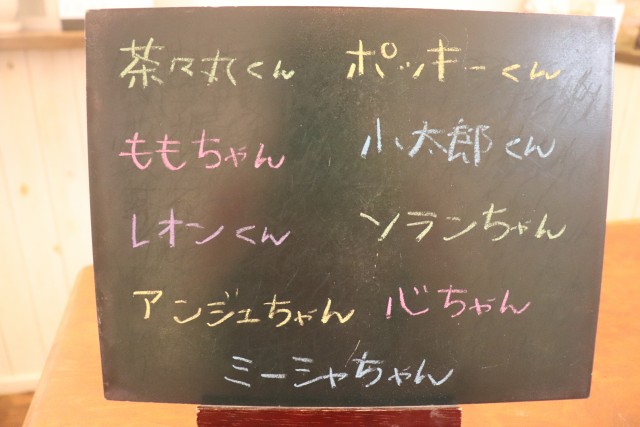 茶々丸くん ポッキーくん
ももちゃん 小太郎くん
レオンくん ソランちゃん
アンジェちゃん 心ちゃん
ミーシャちゃん